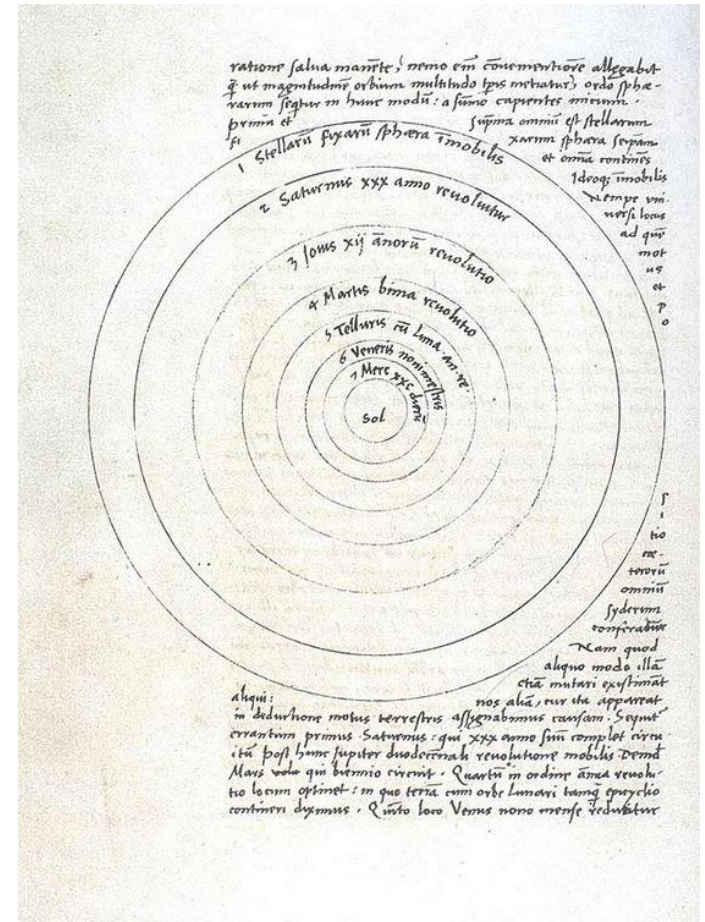 ratione salua manẽte, nemo em̃ cõuenientiorẽ allegabit
q̃ ut magnitudinẽ orbium multitudo tp̃is metiatur, ordo sphæ-
rarum seq̃tur in hunc modũ: a sũmo capientes inicium.
Prima et sup̃ma omniũ est stellarum
fi xarum sphæra seip̃am
et omnia continẽs
Ideoq; ĩmobilis
Nempe vni
uersi locus
ad quẽ
mot
us
et
p
o
1 Stellarũ fixarũ sphæra ĩmobilis
2 Saturnus xxx anno reuoluitur
3 Iouis xij ãnorũ reuolutio
4 Martis bima reuolutio
5 Telluris cũ Luna an. re.
6 Veneris nonimestris
7 Merc xxc dierũ
Sol
s
i
tio
cæ-
terorũ
omniũ
syderum
conferat̃
Nam quod
aliquo modo illã
etiã mutari existimãt
aliqui: nos aliã, cur ita appareat
in deductione motus terrestris assignabimus causam. Sequit̃
errantium primus Saturnus: qui xxx anno suũ complet circu
itũ Post hunc Iupiter duodecẽnali reuolutione mobilis Deinde
Mars volu qui biennio circuit. Quartũ in ordine ãnua reuolu-
tio locum optinet: in quo terrã cum orbe Lunari tamq̃ epicyclio
contineri diximus. Quinto loco Venus nono mense reducitur